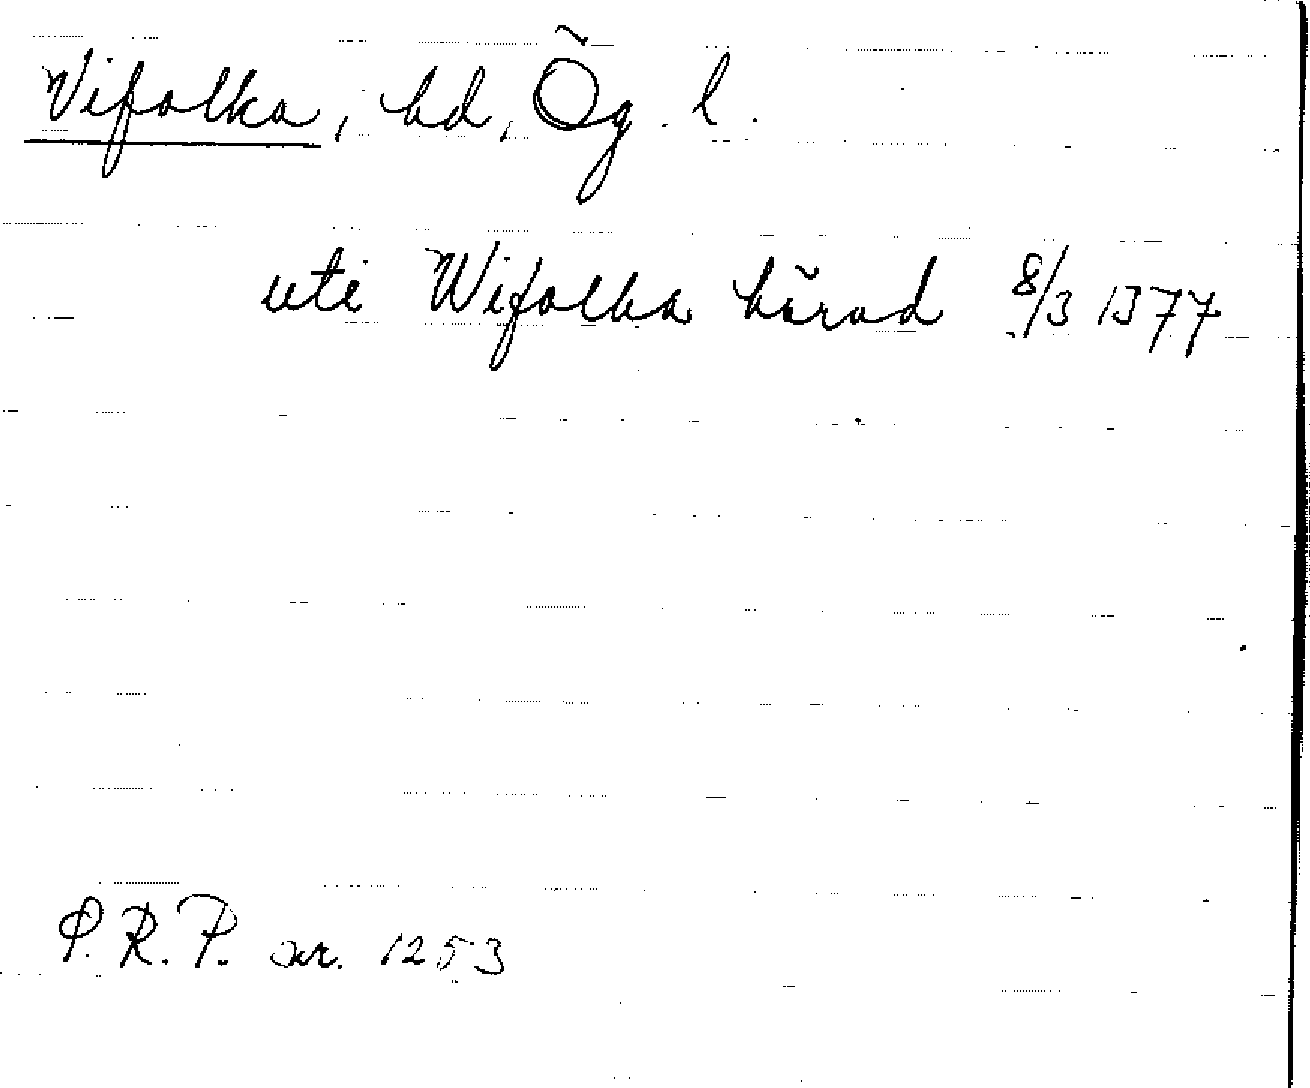 Vifolka, hd, Ög. l.
uti Wifolka härad 8/3 1377
S.R.P. nr. 1253